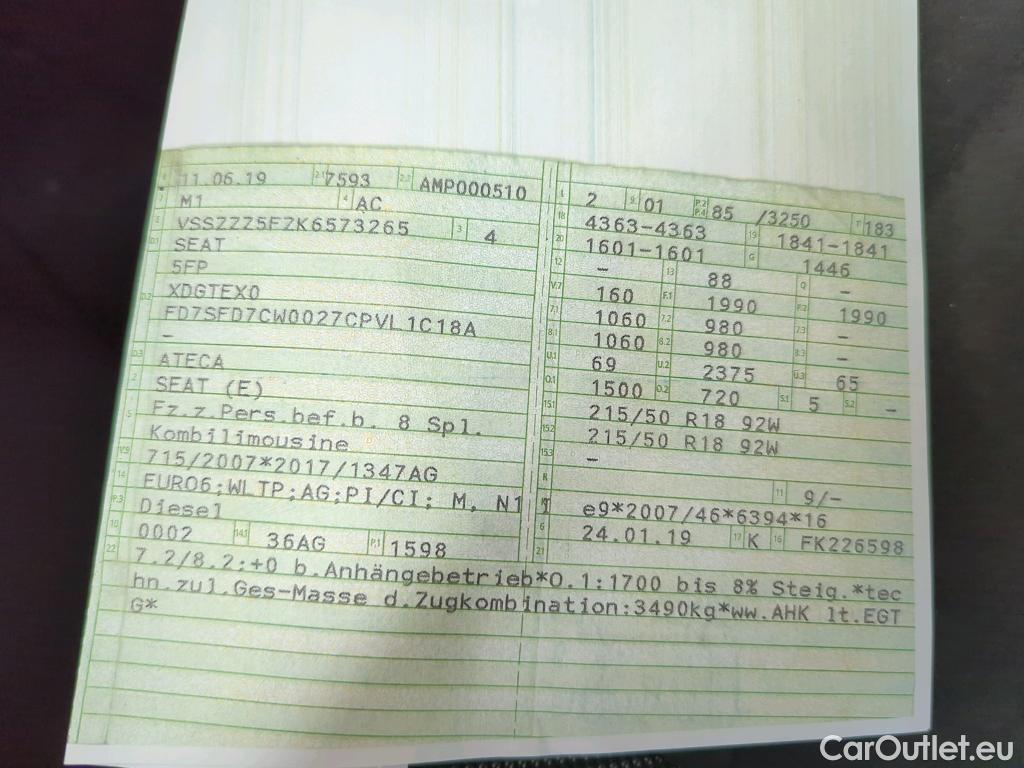 11.06.19 2.1 7593 2.2 AMP000510
M1 4 AC
VSSZZZ5FZK6573265 3 4
D.1 SEAT
5FP
D.2 XDGTEX0
FD7SFD7CW0027CPVL1C18A
–
D.3 ATECA
2 SEAT (E)
5 Fz.z.Pers.bef.b. 8 Spl.
Kombilimousine
V.9 715/2007*2017/1347AG
14 EURO6;WLTP;AG;PI/CI; M, N1 I
P.3 Diesel
10 0002 14.1 36AG P.1 1598
L 2 9 01 P.2 P.4 85 /3250 T 183
18 4363-4363 19 1841-1841
20 1601-1601 G 1446
12 – 13 88 Q –
V.7 160 F.1 1990 F.2 1990
7.1 1060 7.2 980 7.3 –
8.1 1060 8.2 980 8.3 –
U.1 69 U.2 2375 U.3 65
O.1 1500 O.2 720 S.1 5 S.2 –
15.1 215/50 R18 92W
15.2 215/50 R18 92W
15.3 –
R 11 9/-
K e9*2007/46*6394*16
6 24.01.19 17 K 16 FK226598
21
22 7.2/8.2:+0 b.Anhängebetrieb*O.1:1700 bis 8% Steig.*tec
hn.zul.Ges-Masse d.Zugkombination:3490kg*ww.AHK lt.EGT
G*
CarOutlet.eu